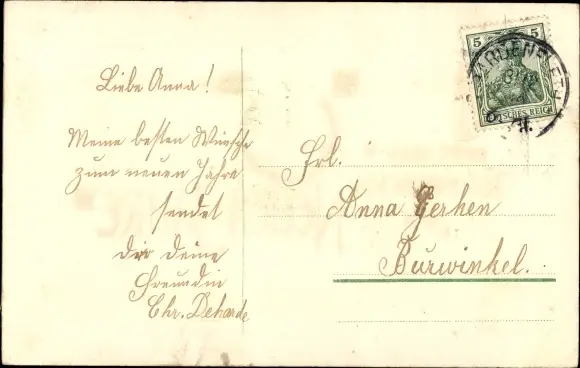 Liebe Anna!
Meine besten Wünsche
zum neuen Jahre
sendet
dir deine
Freundin
Chr. Deharde
5 5
DEUTSCHES REICH
WARDENFLETH
Frl.
Anna Gerhen
Burwinkel.